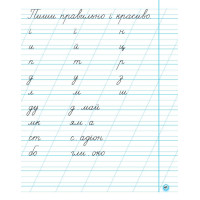 Пиши правильно і красиво
і і н
и й ц
п т р
д у з
л м ш
ду д май
мк ям а
ст с адіон
бо гли око